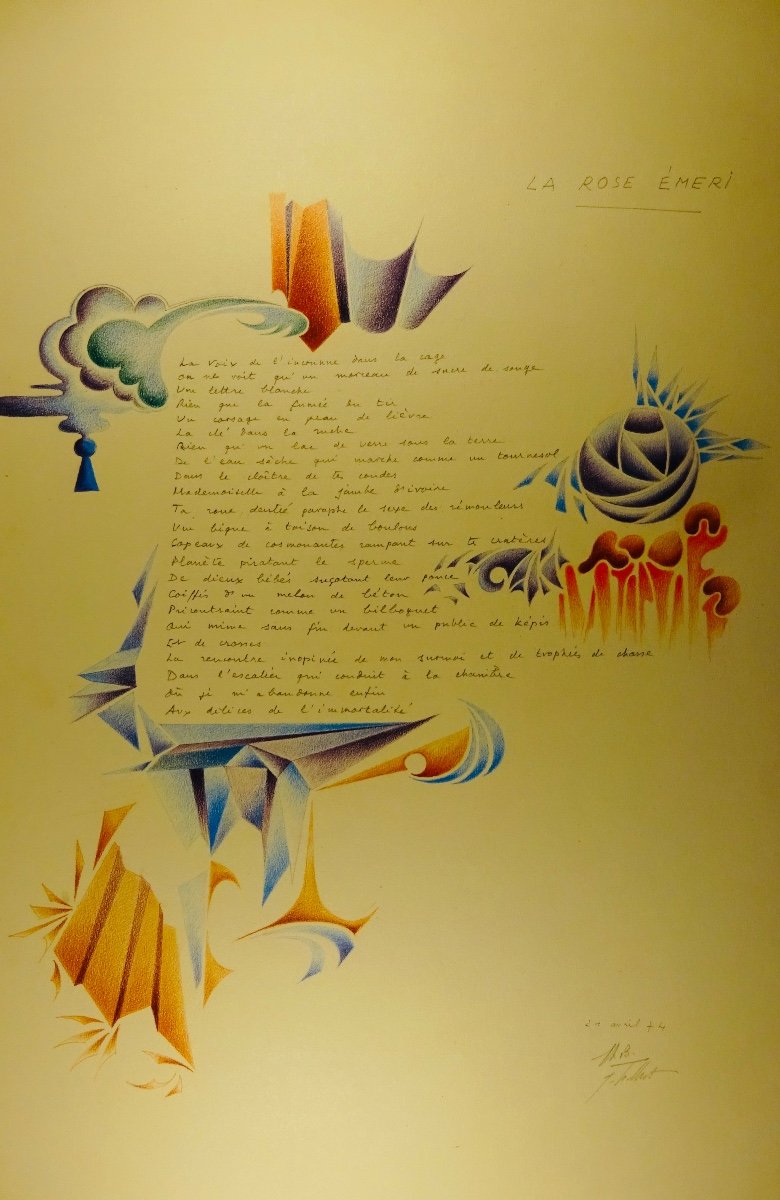 LA ROSE ÉMERI
La voix de l'inconnue dans la cage
On ne voit qu'un morceau de sucre de songe
Une lettre blanche
Rien que la fumée du tir
Un corsage en peau de lièvre
La clé dans la ruche
Rien qu'un lac de verre sous la terre
De l'eau sèche qui marche comme un tournesol
Dans le cloître de tes coudes
Mademoiselle à la jambe d'ivoire
Ta roue dentée paraphe le sexe des rémouleurs
Une bique à toison de boulons
Copeaux de cosmonautes rampant sur tes cratères
Planète piratant le sperme
De dieux bébés suçotant leur pouce
Coiffés d'un melon de béton
Précontraint comme un bilboquet
Qui mime sans fin devant un public de képis
Et de crosses
La rencontre inopinée de mon surmoi et de trophées de chasse
Dans l'escalier qui conduit à la chambre
Où je m'abandonne enfin
Aux délices de l'immortalité
21 avril 74